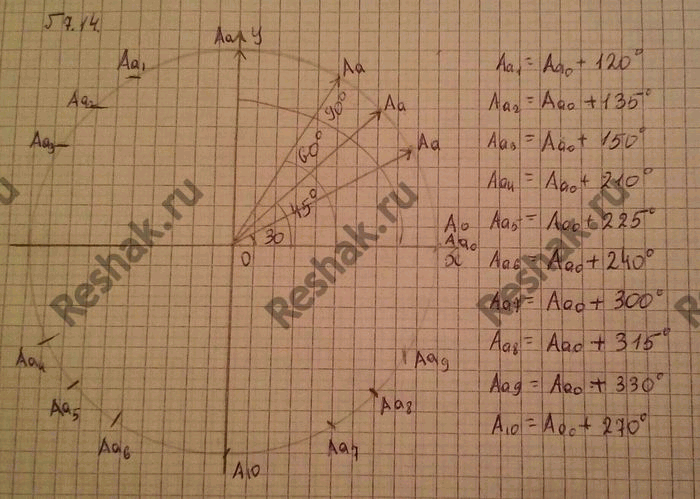 57.14.
Aa y
Aa₁
Aa₂
Aa₃
Aa
Aa
Aa
90°
60°
45°
30
0
A0
Aa₀
x
Aa₄
Aa₅
Aa₆
A10
Aa₇
Aa₈
Aa₉
Aa₁ = Aa₀ + 120°
Aa₂ = Aa₀ + 135°
Aa₃ = Aa₀ + 150°
Aa₄ = Aa₀ + 210°
Aa₅ = Aa₀ + 225°
Aa₆ = Aa₀ + 240°
Aa₇ = Aa₀ + 300°
Aa₈ = Aa₀ + 315°
Aa₉ = Aa₀ + 330°
A10 = Aa₀ + 270°
Reshak.ru
Reshak.ru
Reshak.ru